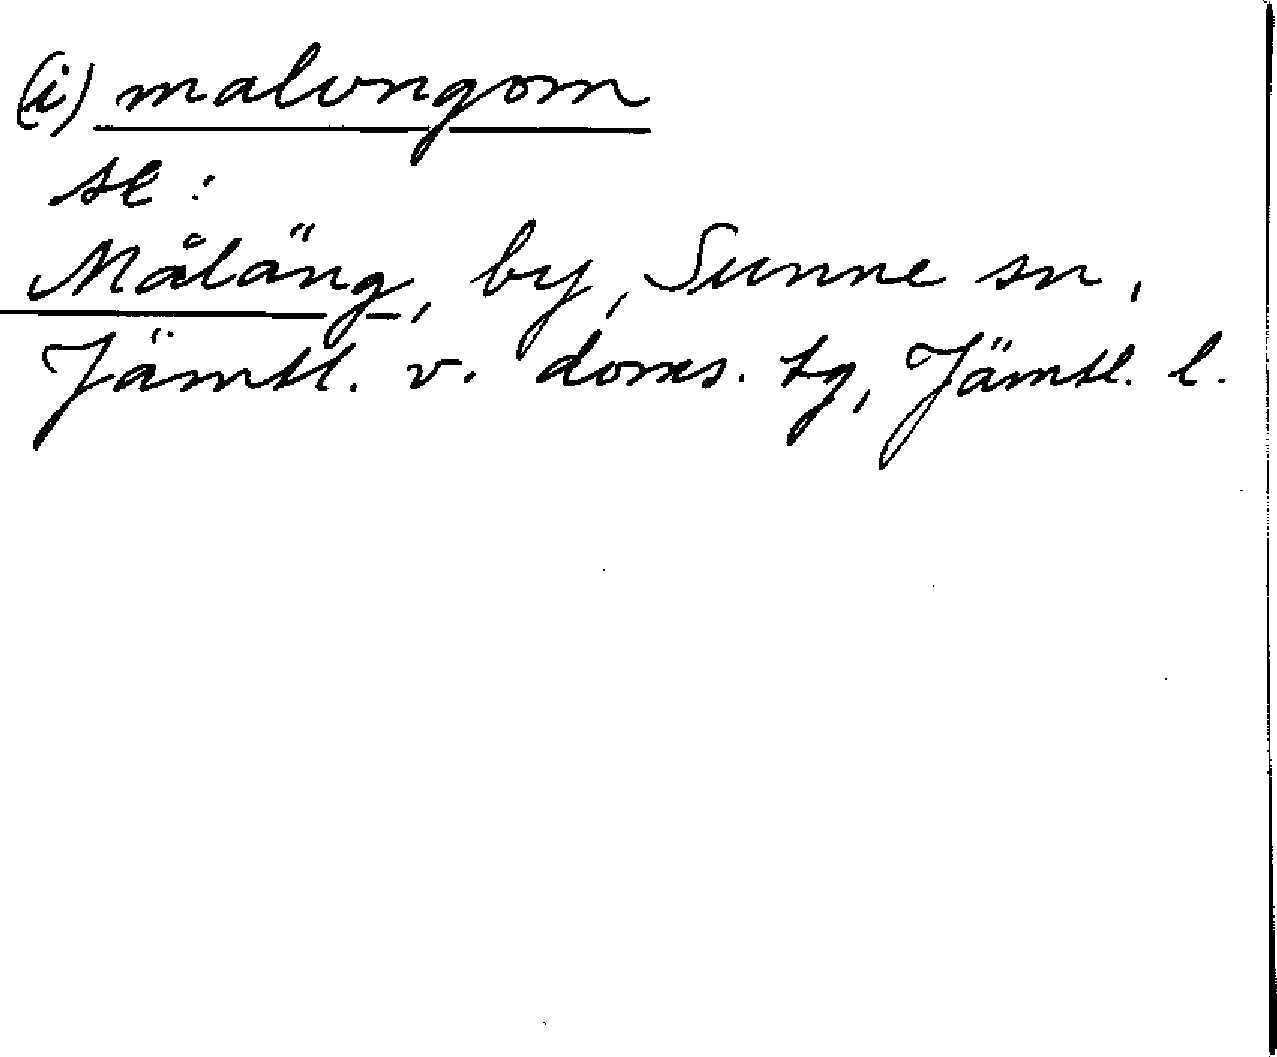 (i) malvngom
se:
Måläng, by, Sunne sn,
Jämtl. v. doms. tg, Jämtl. l.